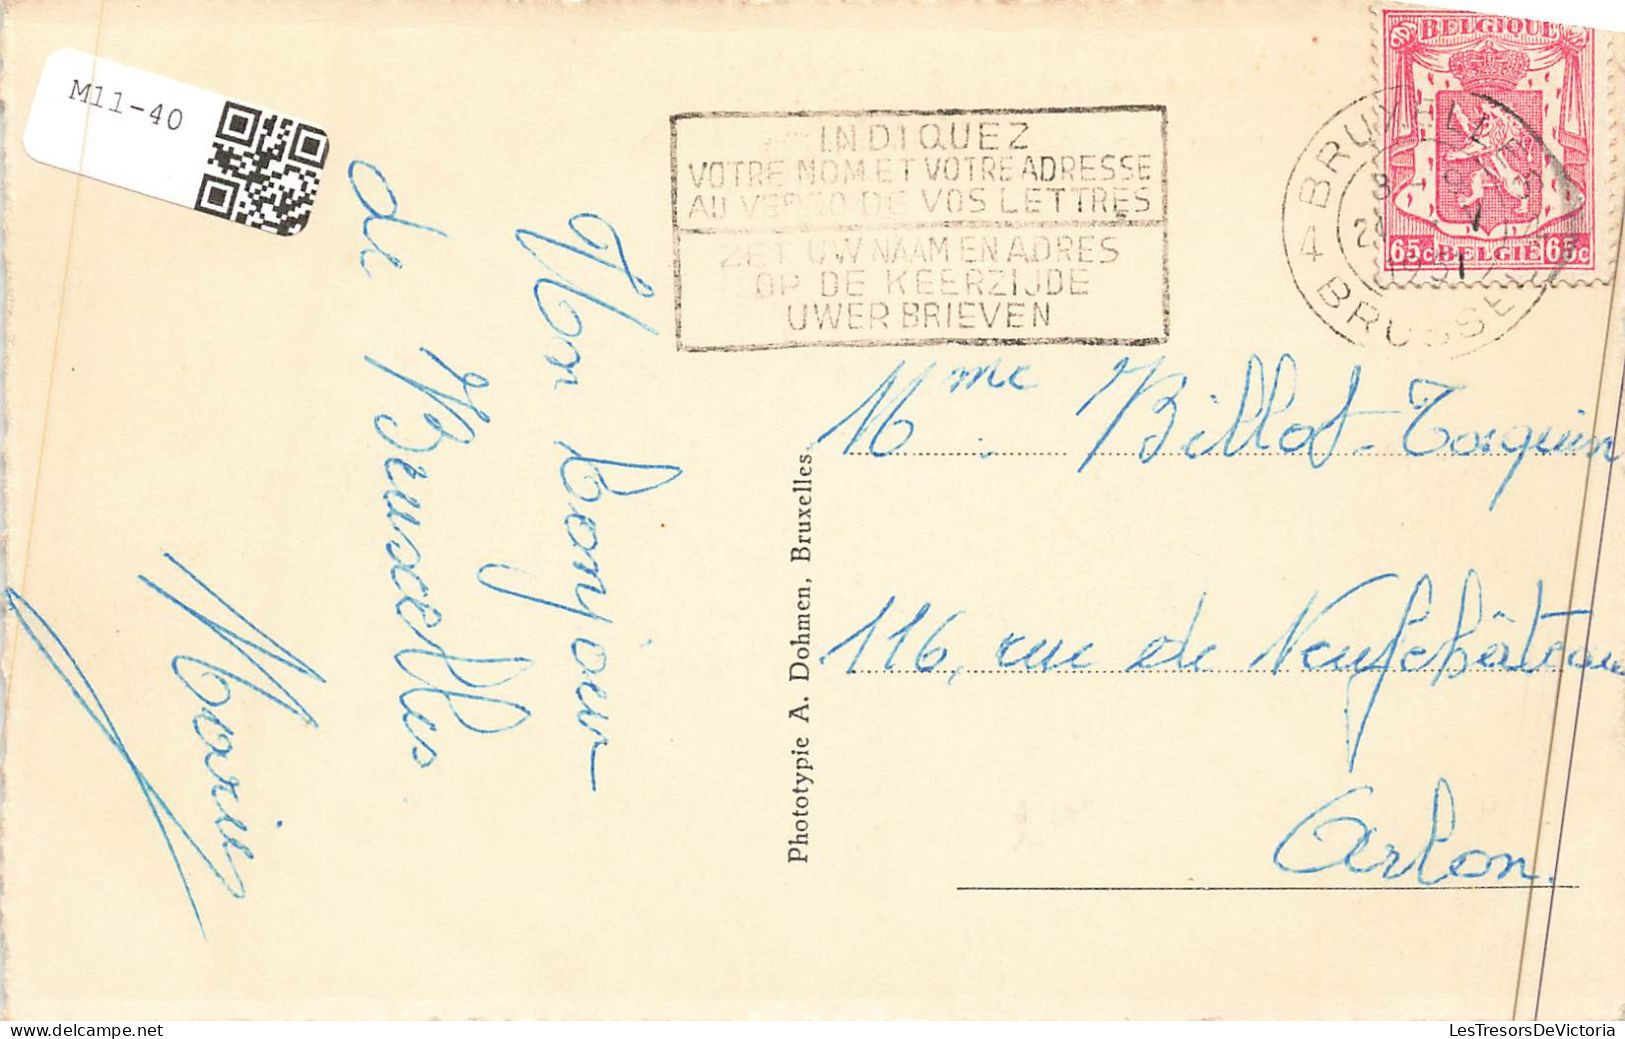 M11-40
INDIQUEZ
VOTRE NOM ET VOTRE ADRESSE
AU VERSO DE VOS LETTRES
ZET UW NAAM EN ADRES
OP DE KEERZIJDE
UWER BRIEVEN
BELGIQUE
65c BELGIË 65c
4 BRUXELLES
BRUSSEL
Mon bonjour
de Bruxelles
Phototypie A. Dohmen, Bruxelles.
Mme Billot-
116, rue de Neufchâteau
Arlon.
LesTresorsDeVictoria